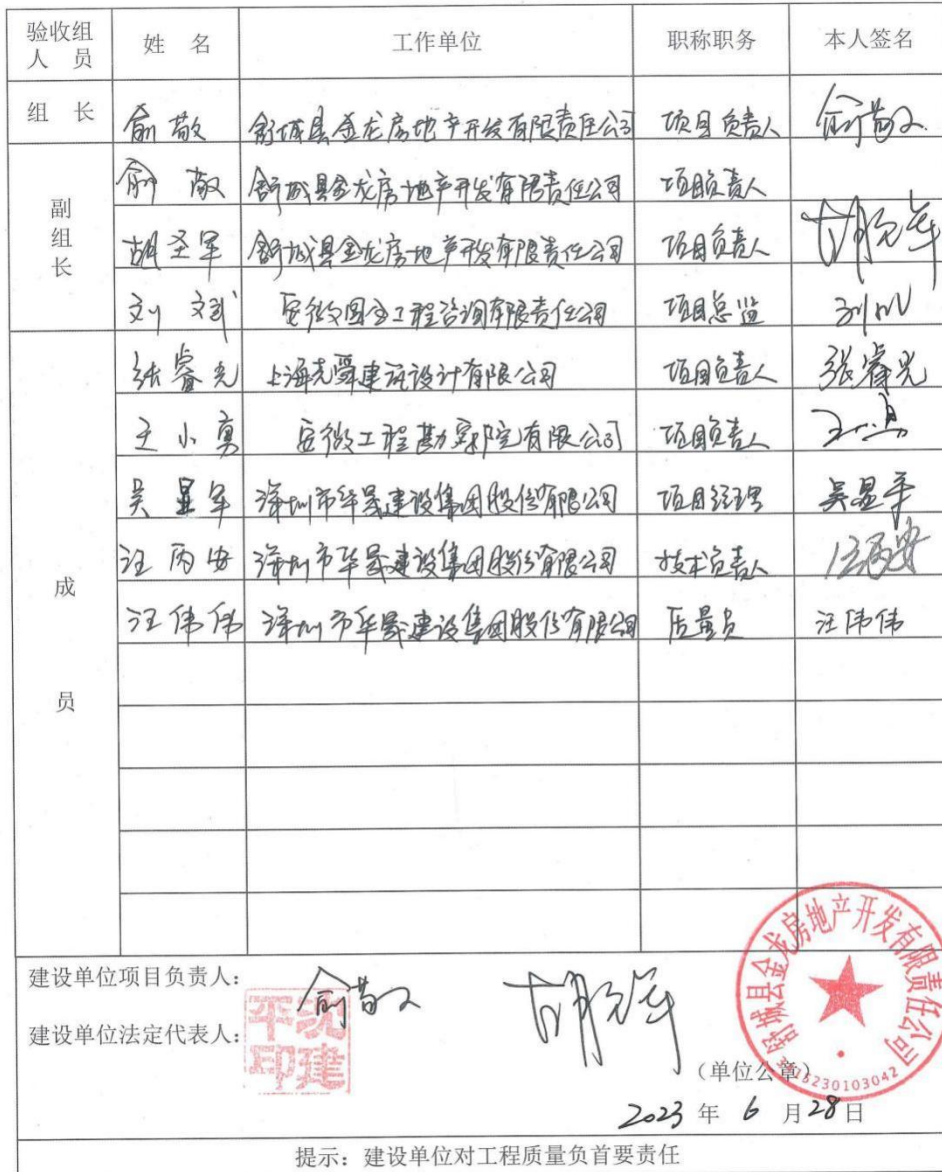 验收组人员 姓 名 工作单位 职称职务 本人签名
组 长 俞敬 舒城县金龙房地产开发有限责任公司 项目负责人 俞敬
副组长 俞敬 舒城县金龙房地产开发有限责任公司 项目负责人
胡圣军 舒城县金龙房地产开发有限责任公司 项目负责人 胡圣军
刘斌 工程咨询有限责任公司 项目总监
成员 张睿光 上海尧舜建筑设计有限公司 项目负责人 张睿光
王小勇 安徽工程勘察院有限公司 项目负责人
吴显军 深圳市华晟建设集团股份有限公司 项目经理 吴显军
汪丙安 深圳市华晟建设集团股份有限公司 技术负责人 汪丙安
汪伟伟 深圳市华晟建设集团股份有限公司 质量员 汪伟伟
建设单位项目负责人: 俞敬 胡圣军
建设单位法定代表人:
舒城县金龙房地产开发有限责任公司
(单位公章)
2023 年 6 月 28 日
提示:建设单位对工程质量负首要责任